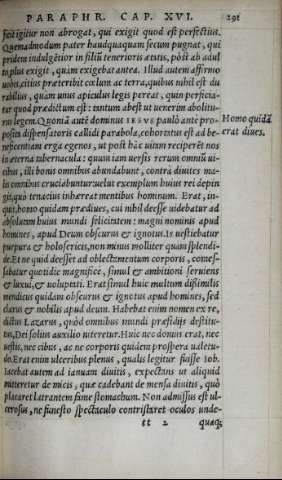 PARAPHR. CAP. XVI. 291
ficit igitur non abrogat, qui exigit quod est perfectius.
Quemadmodum pater haudquaquam secum pugnat, qui
pridem indulgētior in filiū tenerioris ætatis, pòst ab adul
to plus exigit, quàm exigebat antea. Illud autem affirmo
uobis, citius præteribit cœlum ac terra, quibus nihil est du
rabilius, quàm unus apiculus legis pereat, quin perficia-
tur quod prædictum est: tantum abest ut uenerim abolitu-
rus legem. Quoniã autē dominus IESVS paulò ante pro-
positis dispensatoris callidi parabola, cohortatus est ad be-
neficentiam erga egenos, ut post hãc uitam reciperēt nos
in æterna tabernacula: quum iam uersis rerum omniū ui-
cibus, illi bonis omnibus abundabunt, contrà diuites ma-
lis omnibus cruciabuntur: uelut exemplum huius rei depin
git, quò tenacius inhæreat mentibus hominum. Erat, in-
quit, homo quidam prædiues, cui nihil deesse uidebatur ad
absolutam huius mundi felicitatem: magni nominis apud
homines, apud Deum obscurus & ignotus. Is uestiebatur
purpura & holosericis, non minus molliter quàm splendi-
de. Et ne quid deesset ad oblectamentum corporis, conuef-
sabatur quotidie magnificè, simul & ambitioni seruiens
& luxui, & uoluptati. Erat simul huic multum dissimilis
mendicus quidam obscurus & ignotus apud homines, sed
clarus & nobilis apud deum. Habebat enim nomen ex re,
dictus Lazarus, quòd omnibus mundi præsidijs destitu-
tus, Dei solius auxilio niteretur. Huic nec domus erat, nec
uestis, nec cibus, ac ne corporis quidem prospera ualetu-
do. Erat enim ulceribus plenus, qualis legitur fuisse Iob.
Iacebat autem ad ianuam diuitis, expectans ut aliquid
mitteretur de micis, quæ cadebant de mensa diuitis, quò
placaret latrantem fame stomachum. Non admissus est ul-
cerosus, ne funesto spectaculo contristaret oculos unde-
tt 2 quaq;
Homo quidã
erat diues.